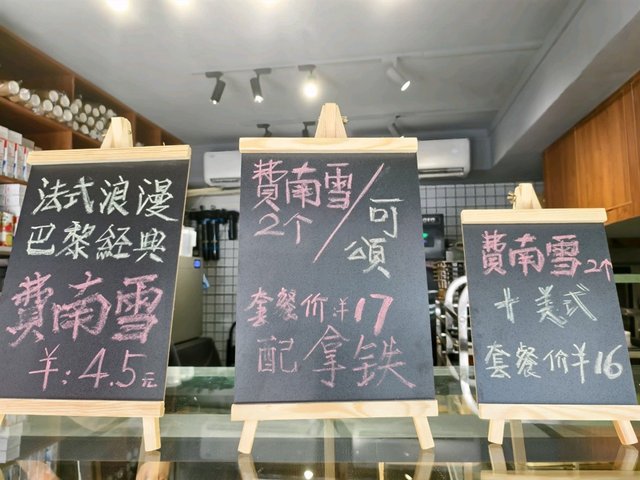 法式浪漫
巴黎經典
費南雪
¥:4.5元
費南雪/可頌
2个
套餐价¥17
配拿铁
費南雪2个
+美式
套餐价¥16